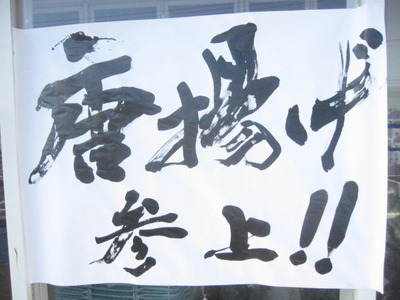 唐揚げ
参上!!